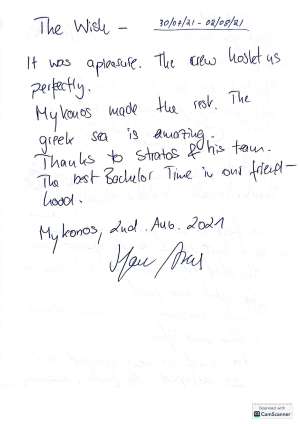 The Wish - 30/07/21 - 02/08/21
It was a pleasure. The crew hostet us
perfectly.
Mykonos made the rest. The
greek sea is amazing.
Thanks to Stratos & his team.
The best Bachelor Time in our friend-
hood.
Mykonos, 2nd. Aug. 2021
Scanned with
CamScanner